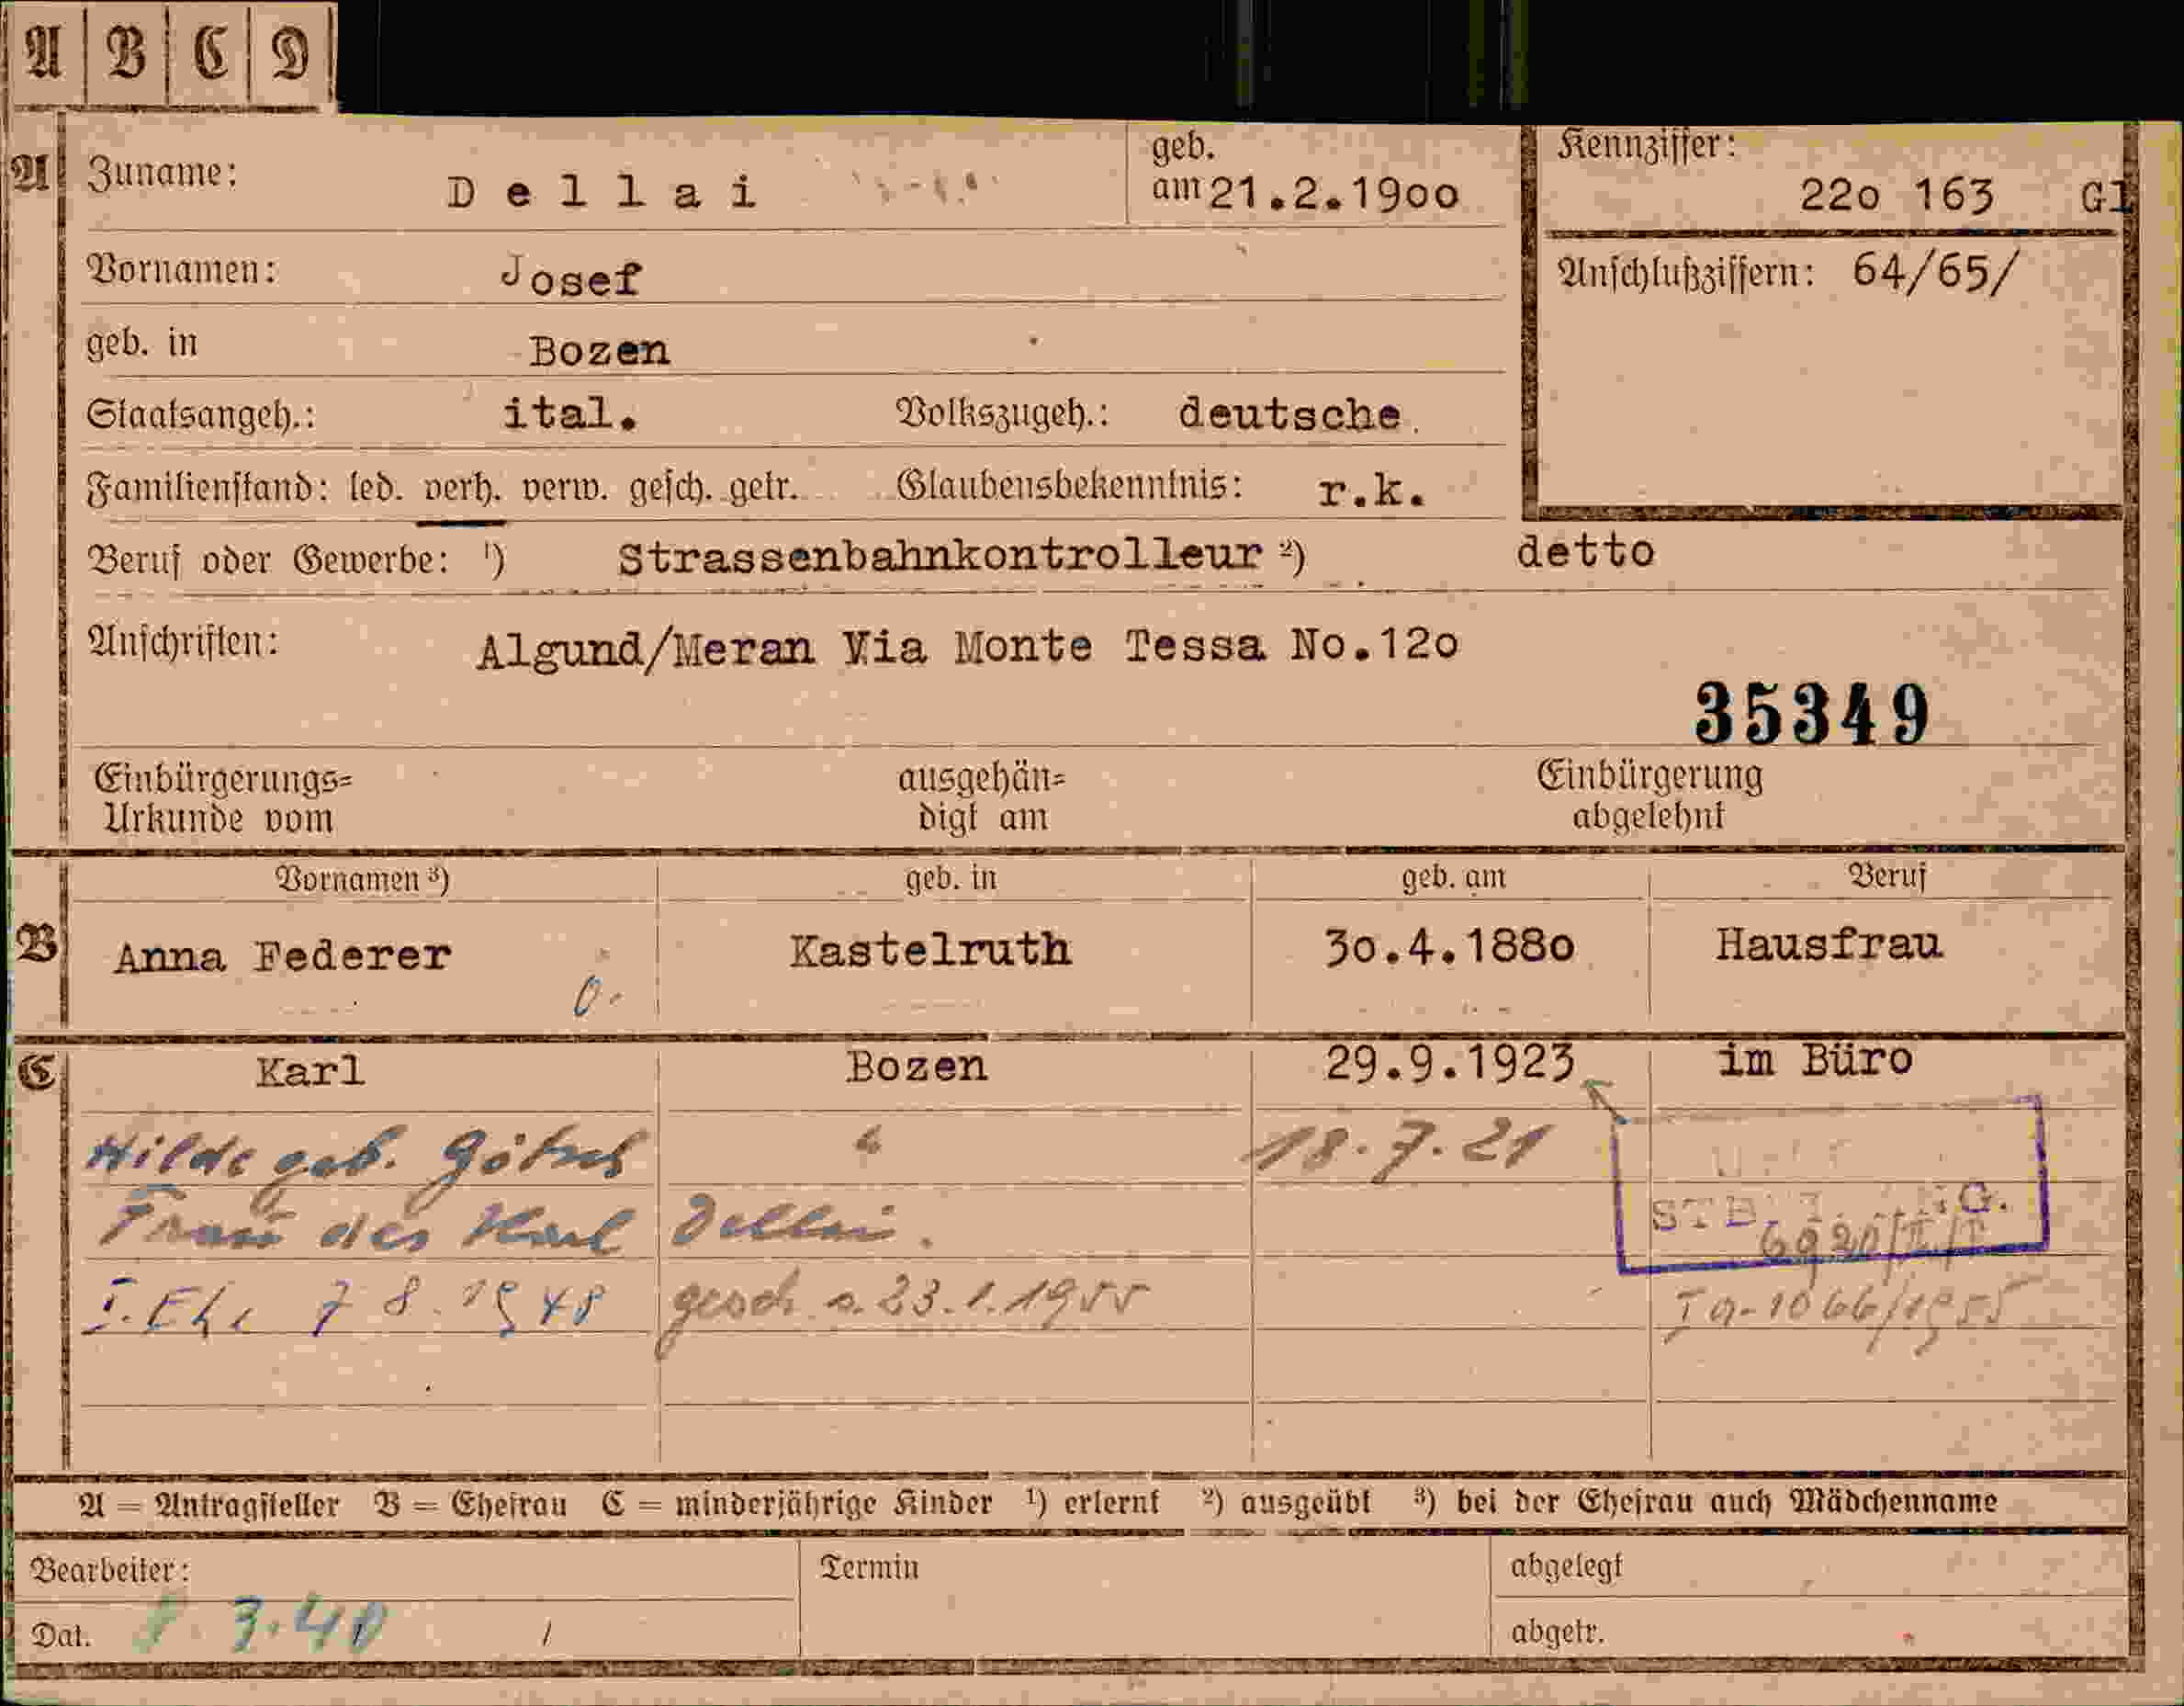 A B C D
A Zuname: Dellai geb. am 21.2.1900 Kennziffer: 220 163 Gl
Vornamen: Josef Anschlußziffern: 64/65/
geb. in Bozen
Staatsangeh.: ital. Volkszugeh.: deutsche.
Familienstand: led. verh. verw. gesch. getr. Glaubensbekenntnis: r.k.
Beruf oder Gewerbe: ¹) Strassenbahnkontrolleur ²) detto
Anschriften: Algund/Meran Via Monte Tessa No.120
35349
Einbürgerungs= ausgehän= Einbürgerung
Urkunde vom digt am abgelehnt
Vornamen ³) geb. in geb. am Beruf
B Anna Federer Kastelruth 30.4.1880 Hausfrau
C Karl Bozen 29.9.1923 im Büro
Hilde geb. Götsch " 18.7.21
Frau des Karl Dellai.
I. Ehe 7 8. 1948 gesch. a. 23.1.1955 Ia-1066/1955
A = Antragsteller B = Ehefrau C = minderjährige Kinder ¹) erlernt ²) ausgeübt ³) bei der Ehefrau auch Mädchenname
Bearbeiter: Termin abgelegt
Dat. 3.40 / abgetr.